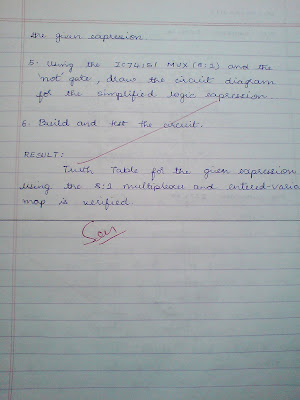 the given expression.
5. Using the IC74151 MUX (8:1) and the
'not' gate, draw the circuit diagram
for the simplified logic expression
6. Build and test the circuit.
RESULT:
Truth Table for the given expression
using the 8:1 multiplexer and entered-varia
map is verified.